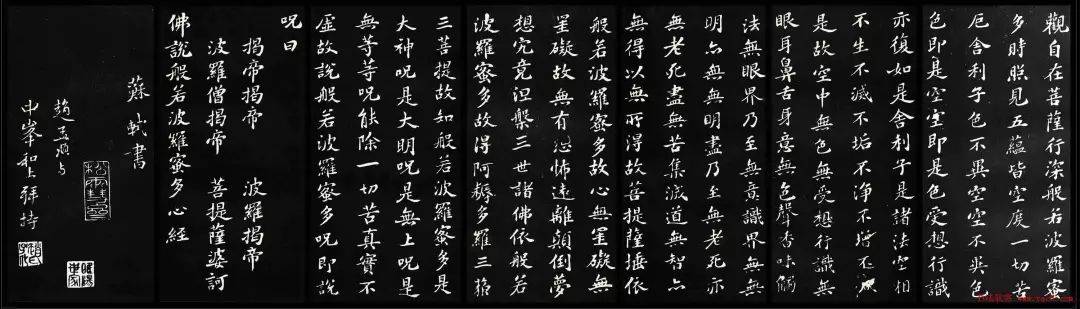 觀自在菩薩行深般若波羅蜜
多時照見五蘊皆空度一切苦
厄舍利子色不異空空不異色
色即是空空即是色受想行識
亦復如是舍利子是諸法空相
不生不滅不垢不淨不增不減
是故空中無色無受想行識無
眼耳鼻舌身意無色聲香味觸
法無眼界乃至無意識界無無
明亦無無明盡乃至無老死亦
無老死盡無苦集滅道無智亦
無得以無所得故菩提薩埵依
般若波羅蜜多故心無罣礙無
罣礙故無有恐怖遠離顛倒夢
想究竟涅槃三世諸佛依般若
波羅蜜多故得阿耨多羅三藐
三菩提故知般若波羅蜜多是
大神呪是大明呪是無上呪是
無等等呪能除一切苦真實不
虛故說般若波羅蜜多呪即說
呪曰
揭帝揭帝 波羅揭帝
波羅僧揭帝 菩提薩婆訶
佛說般若波羅蜜多心經
蘇軾書
趙孟頫与
中峯和上拜持
松雪齋